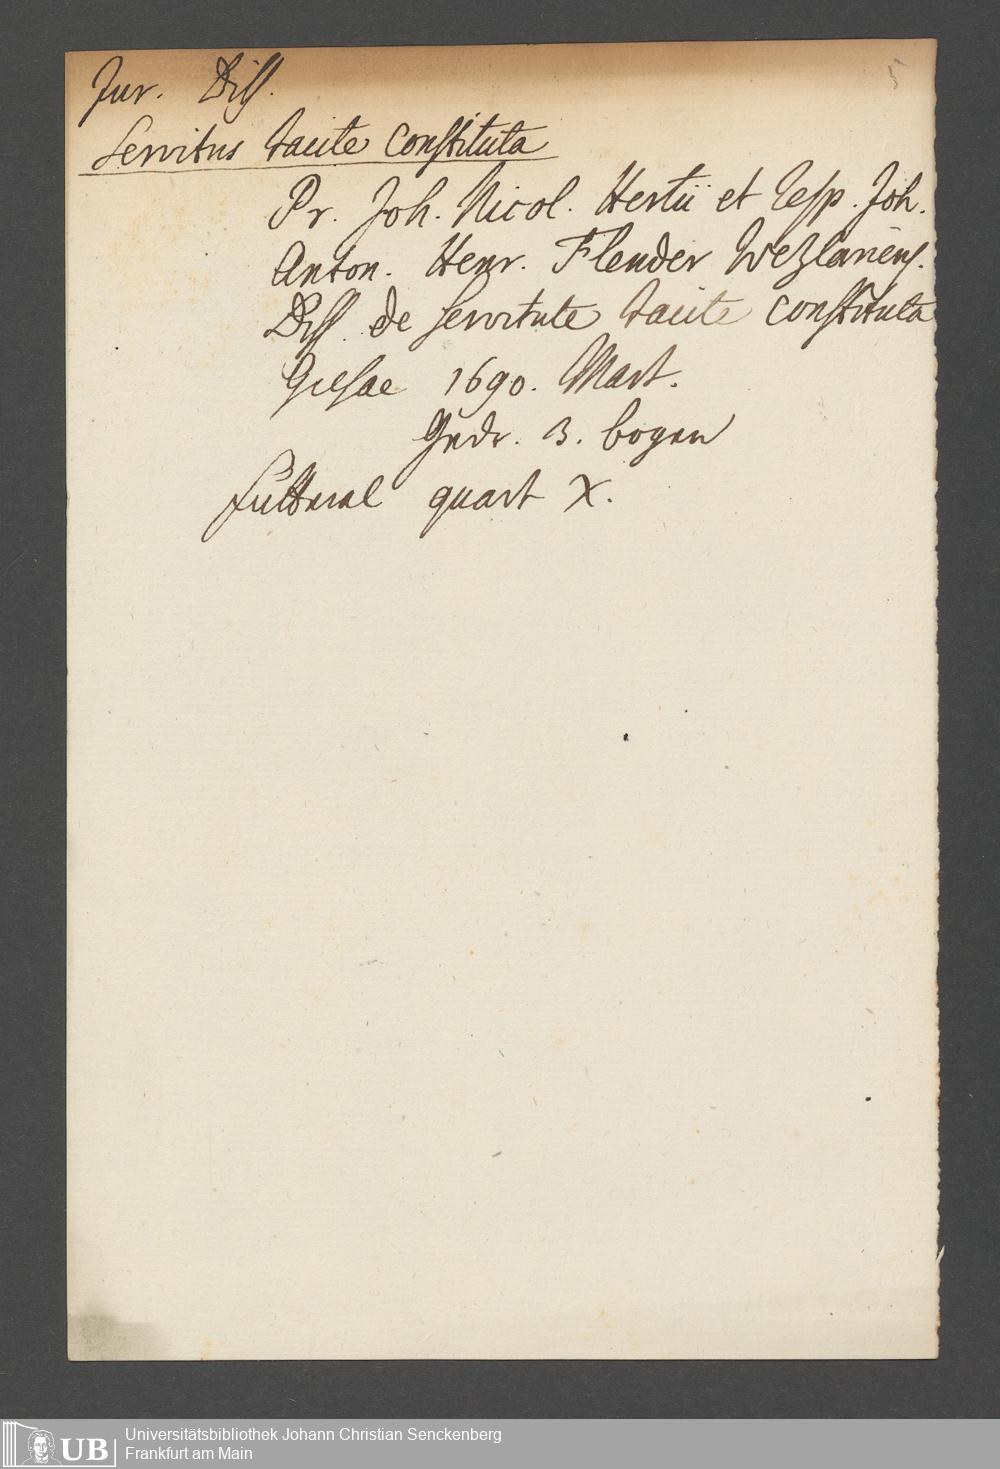 Jur. Diss.
5
Servitus tacite constituta
Pr. Joh. Nicol. Hertii et Resp. Joh.
Anton. Henr. Flender Wezlariens.
Diss. de servitute tacite constituta
Giessae 1690. Mart.
Gedr. 3. bogen
Futteral quart X.
UB
Universitätsbibliothek Johann Christian Senckenberg
Frankfurt am Main